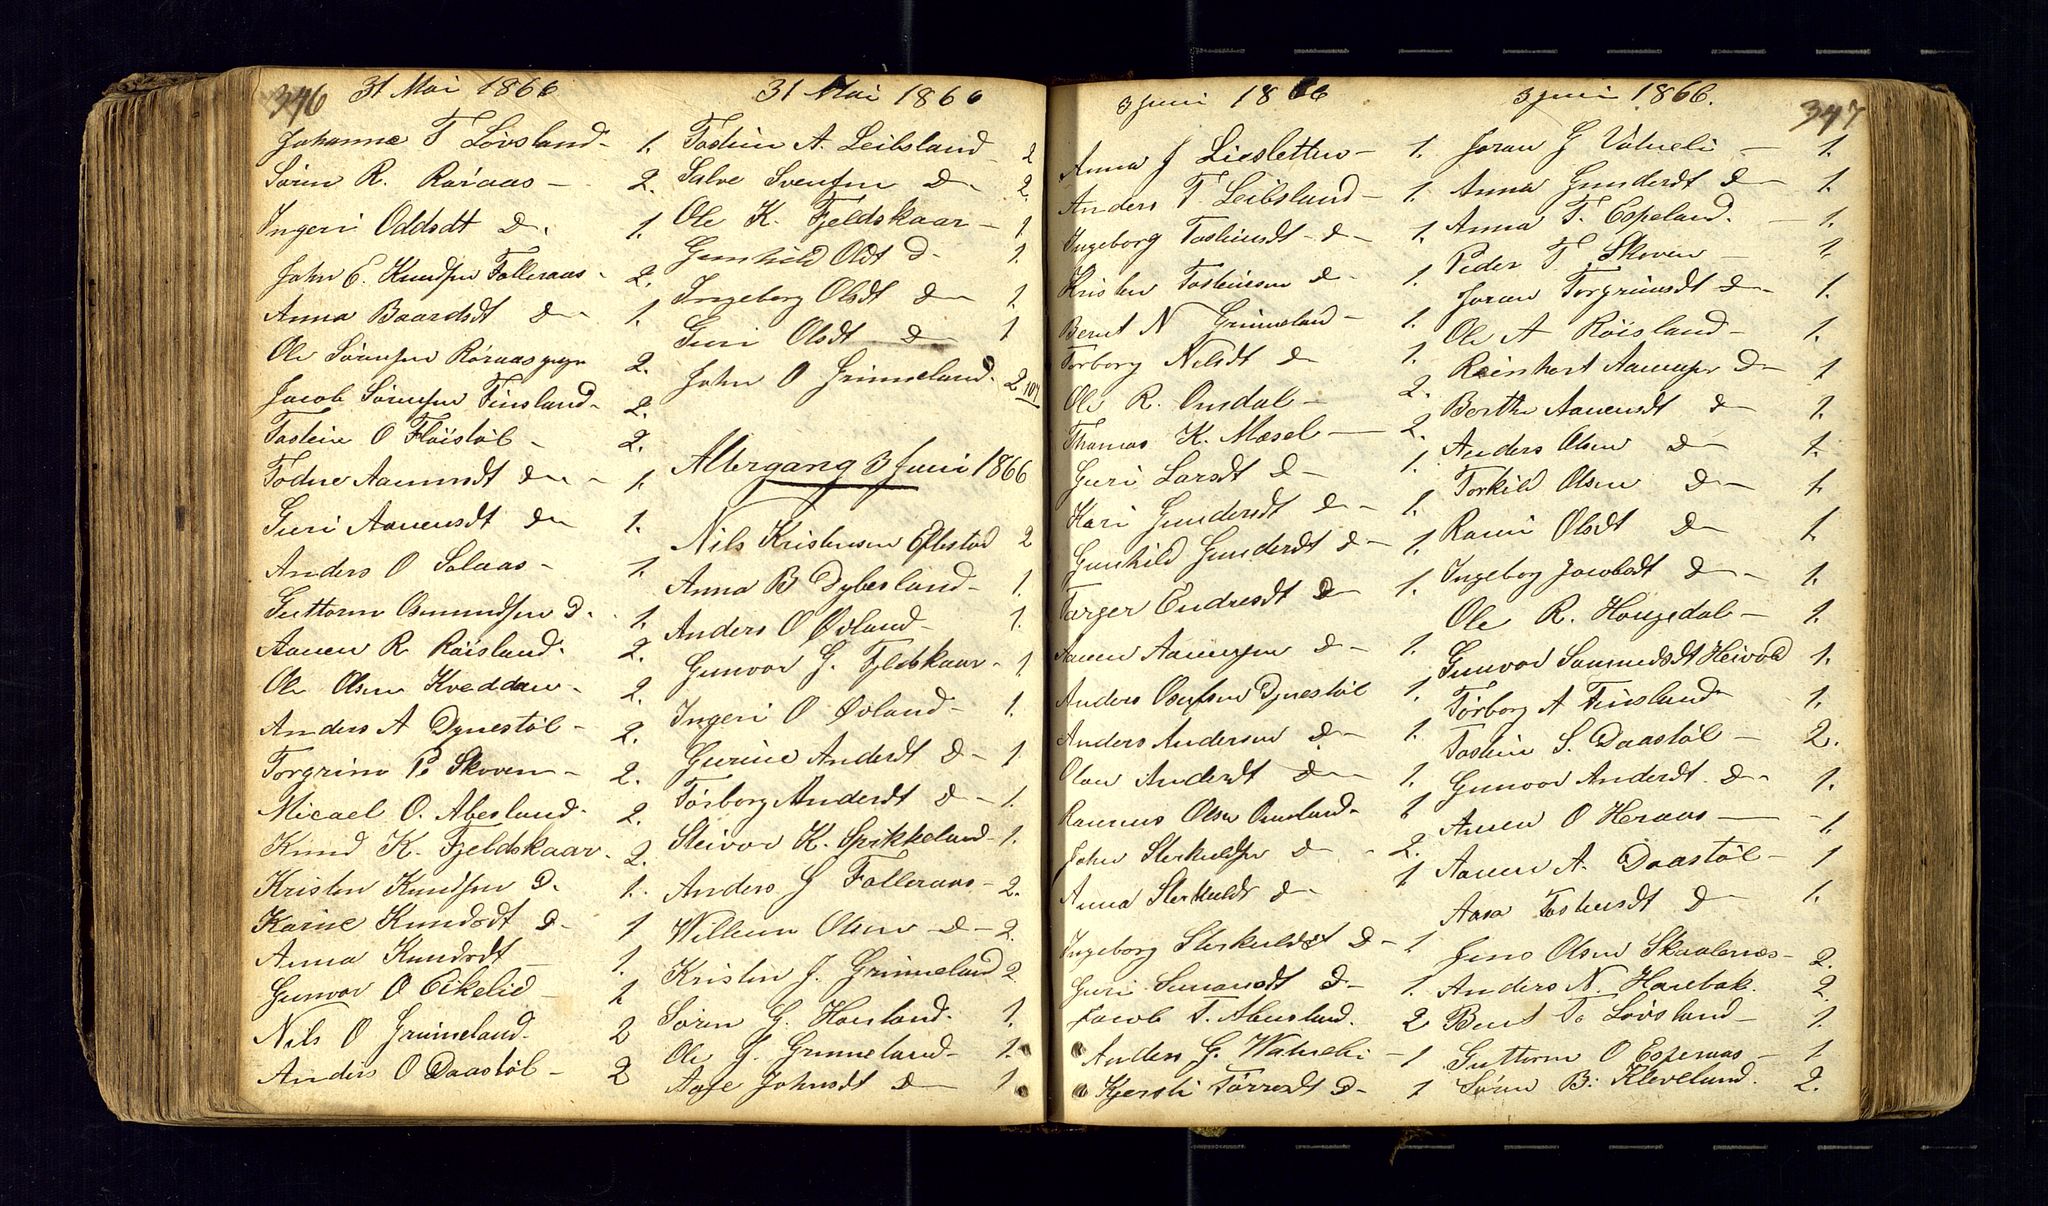 346
31 Mai 1866
Johanne T Lövsland - 1.
Sören R. Röraas - 2.
Ingeri Oddsdt D. 1.
John E. Knudsen Falleraas - 2.
Anna Baardsdt D - 1.
Ole Sörensen Röraas 2.
Jacob Sörensen Finsland - 2.
Tostein O Flöistöl - 2.
Todne Aanensdt D - 1.
Guri Aanensdt D - 1.
Anders O Solaas - 1.
Guttorm Osmundsen D. 1.
Aanen R Röisland. 2.
Ole Olsen Kveddan - 2.
Anders A Dynestöl - 2.
Torgrim P. Skoven - 2.
Micael O. Abesland. 2.
Knud K. Fjeldskaar. 2.
Kristen Knudsen D. 1.
Karine Knudsdt D - 1
Anna Knudsdt - 1.
Gunvor O Eikelid - 1
Nils O Grimeland. 2
Anders O Daastöl - 2
31 Mai 1866
Tostein A. Leibsland - 2
Salve Svensen D - 2.
Ole K. Fjeldskaar - 1
Gunhild Olsdt D - 1.
Ingeborg Olsdt D - 1.
Guri Olsdt D - 1
John O Grimeland. 2
107
Altergang 3 Juni 1866
Nils Kristensen Eftestad 2
Anna B Dybesland - 1.
Anders O Övland - 1.
Gunvor G. Fjeldskaar - 1
Ingeri O Övland - 1.
Gurine Andersdt D - 1
Törborg Andersdt D - 1.
Steivor K. Sprikkeland - 1.
Anders G Falleraas - 2.
Willum Olsen D - 2.
Kristen J. Grimeland 2
Sören G. Hörsland. 1.
Ole J. Grimeland - 1.
Aase Johnsdt D - 1.
3 Juni 1866
Anna J Liesletten - 1.
Anders T. Leibsland - 1.
Ingeborg Tosteinsdt D - 1.
Kristen Tosteinsen D - 1.
Bernt N Grimeland - 1.
Torborg Nilsdt D - 1.
Ole R. Omdal - 2.
Thomas K. Mæsel - 2.
Guri Larsdt D - 1
Kari Gundersdt D - 1.
Gunhild Gundersdt D - 1.
Targer Endresdt D - 1.
Aanen Aanensen D - 1.
Anders Osulsen Dynestöl 1.
Anders Andersen D - 1.
Olau Andersdt D - 1.
Rasmus Olsen Omland - 1
John Sterkuldsen D - 2.
Anna Sterkuldsdt D - 1
Ingeborg Sterkuldsdt D - 1
Guri D - 1.
Jacob T. Abusland. 2
Anders G. Watneli - 1
Kjersti Törresdt D - 1
3 Juni 1866.
347
Joran G Vatneli - 1.
Anna Gundersdt D - 1.
Anna T. Espeland. - 1.
Peder T Skoven - 1.
Joran Torgrimsdt D - 1.
Ole A Röisland - 1.
Reinhert Aanensen D - 1
Berthe Aanensdt D - 1.
Anders Olsen D - 1.
Torkild Olsen D - 1.
Ranni Olsdt D - 1.
Ingeborg Jacobsdt D - 1.
Ole R. Hougedal - 1.
Gunvor Samuelsdt Heivold 1.
Törborg A Finsland 1.
Tostein S. Daastöl - 2.
Gunvor Andersdt D - 1.
Aanen O Heraas - 1.
Aanen A. Daastöl - 1
Aasa Tosteinsdt D - 1.
Jens Olsen Skaalenæs - 2.
Anders N. Harebak. 2.
Bent T. Lövsland - 1.
Guttorm O Esperaas - 1
Sören B. Kleveland. 2.